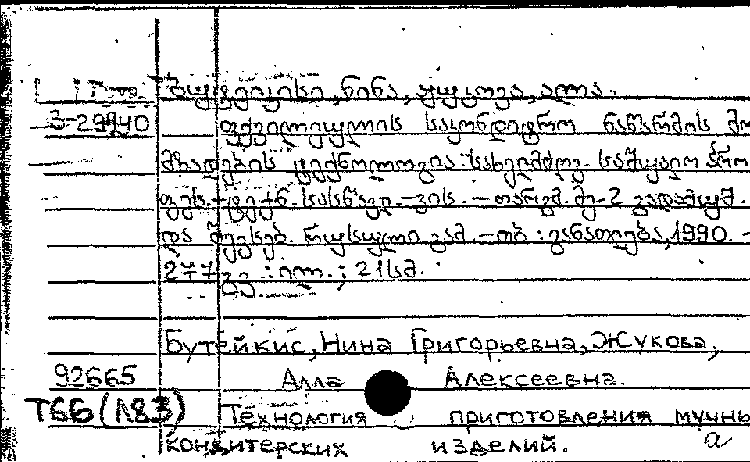 ბუტეიკისი, ნინა, ჟუკოვა, ალა.
3-29940 ფქვილეულის საკონდიტრო ნაწარმის მო
მზადების ტექნოლოგია: სახელმძღვ. საშუალო პრო
ფეს.-ტექნ. სასწავლ.-ვის. - თარგმ. მე-2 გადამუშ.
და შევსებ. რუსული გამ. - თბ.: განათლება, 1990. -
277 გვ.: ილ.; 21 სმ.
Бутейкис, Нина Григорьевна, Жукова,
92665 Алла Алексеевна.
Т66(А83) Технология приготовления мучны
кондитерских изделий. а